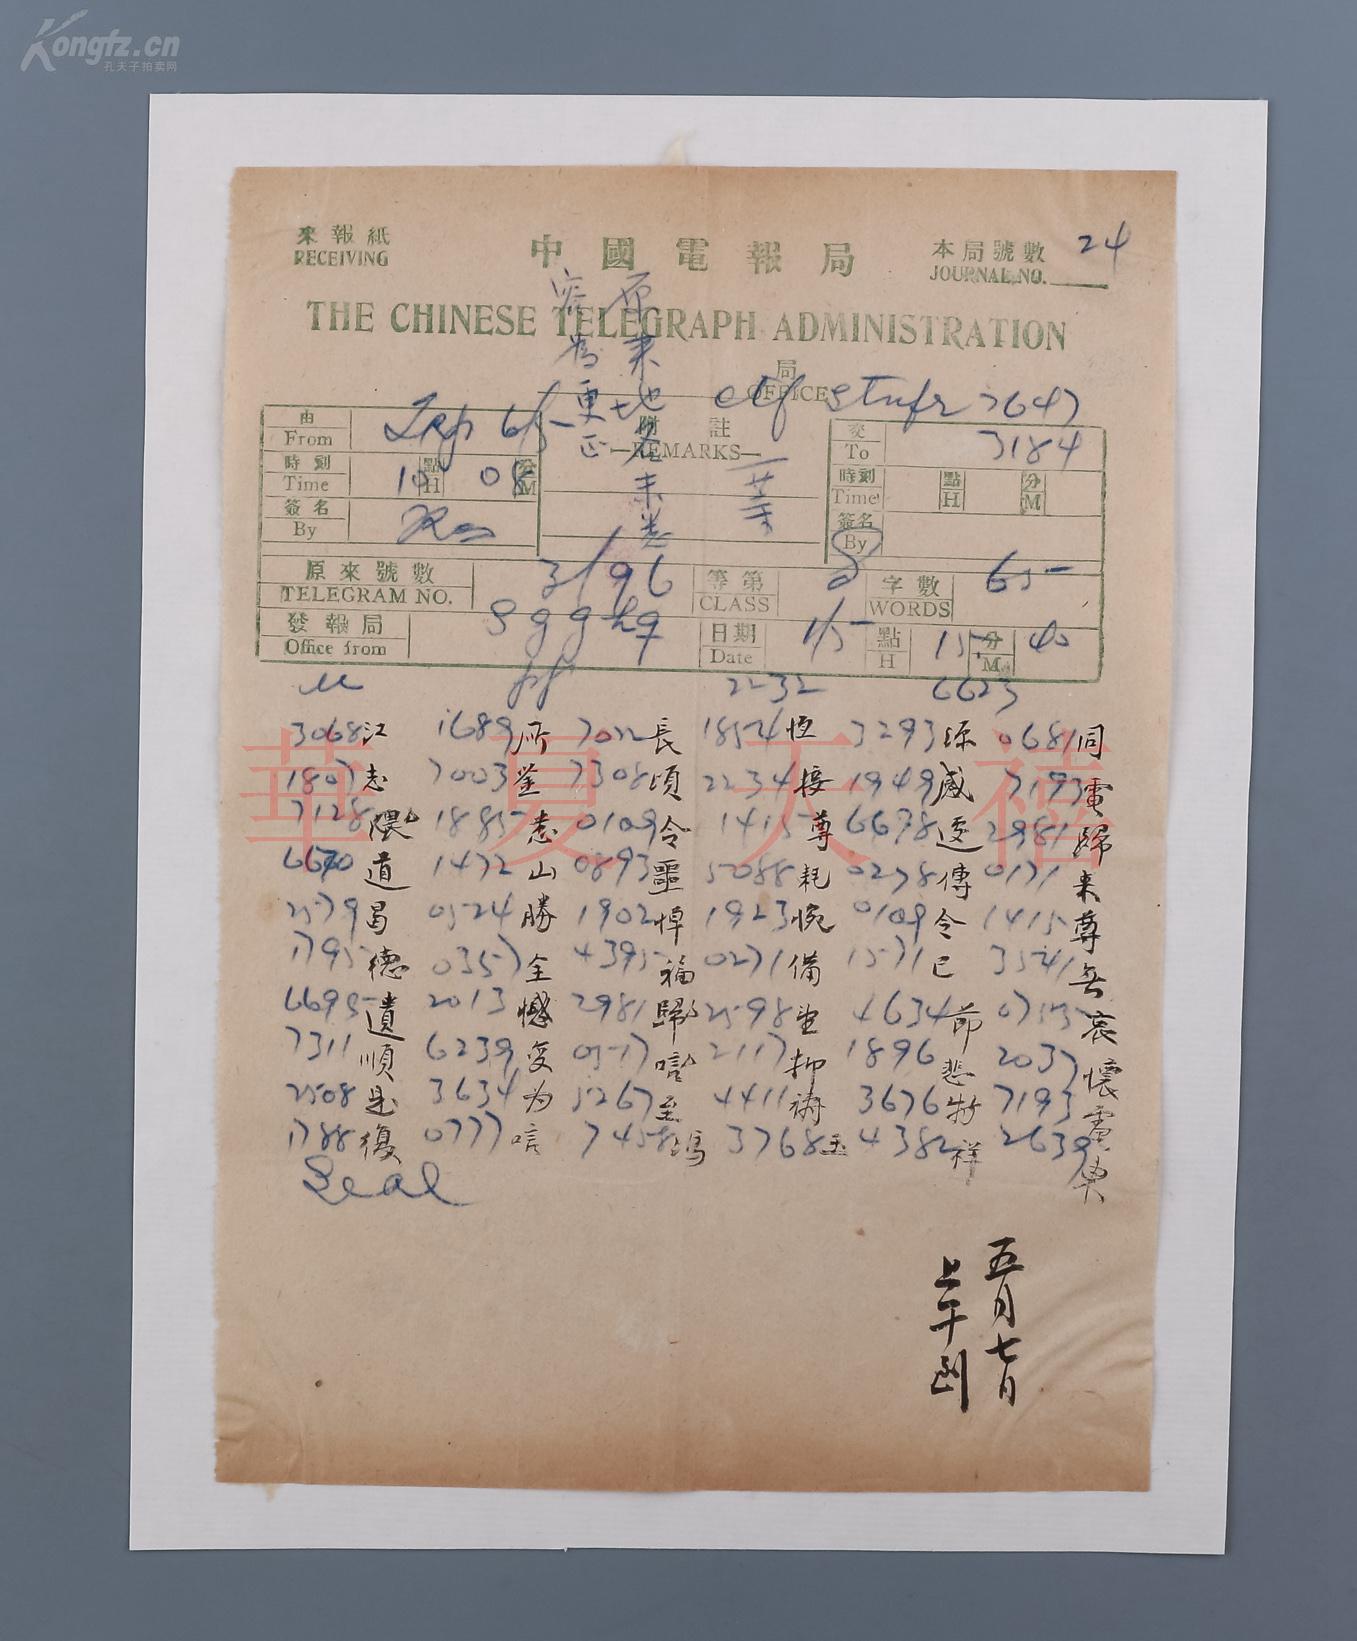 Kongfz.cn
孔夫子拍卖网
來報紙
RECEIVING
中國電報局
本局號數 24
JOURNAL NO.
THE CHINESE TELEGRAPH ADMINISTRATION
局
OFFICE
由
From
附註
REMARKS
交
To
3184
時刻
Time
點
H
分
M
時刻
Time
點
H
分
M
簽名
By
簽名
By
原來號數
TELEGRAM NO.
3/96
等第
CLASS
字數
WORDS
65
發報局
Office from
日期
Date
1/5
點
H
15
分
M.
40
2232 6623
3068江 1689所 7022長 1854恆 3293琼 0681同
1807志 7003鉴 7308頃 2234接 1949感 7193電
7128隈 1885悫 0109令 1415尊 6678遽 2981歸
6670道 1472山 0893噩 5088耗 0278傳 0171来
2579昌 0524勝 1902悼 1923惋 0109令 1415尊
1795德 0357全 4395福 0271備 1571已 3541
6695遺 2013憾 2981歸 2598 4634節 0755哀
7311順 6239变 0517 2117抑 1896悲 2037懷
2508是 3634为 5267至 4411禱 3676特 7193電
1788復 0777唁 7458 3768 4382祥 2639奠
Seal
五月七日
上午到
華夏天禧